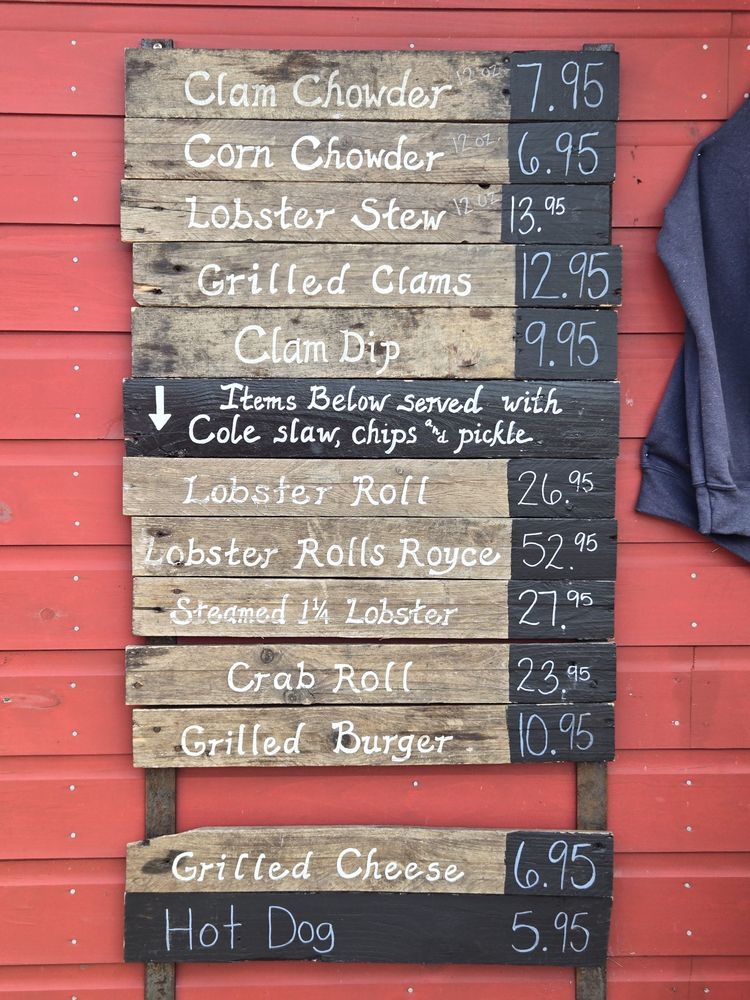 Clam Chowder 12 oz 7.95
Corn Chowder 12 oz. 6.95
Lobster Stew 12 oz 13.95
Grilled Clams 12.95
Clam Dip 9.95
↓ Items Below served with
Cole slaw, chips and pickle
Lobster Roll 26.95
Lobster Rolls Royce 52.95
Steamed 1¼ Lobster 27.95
Crab Roll 23.95
Grilled Burger 10.95
Grilled Cheese 6.95
Hot Dog 5.95